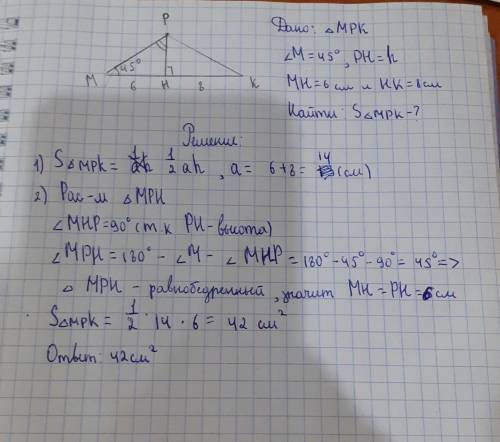 P
45°
M 6 H 8 K
Дано: △MPK
∠M=45°, PH=h
MH=6 см и HK=8 см
Найти: S△MPK-?
Решение:
1) S△MPK= 1/2 ah, a= 6+8= 14 (см)
2) Рас-м △MPH
∠MHP=90° (т.к PH-высота)
∠MPH=180° - ∠M - ∠MHP = 180°-45°-90°= 45° =>
△ MPH - равнобедренный, значит MH=PH=6 см
S△MPK= 1/2 · 14 · 6 = 42 см²
Ответ: 42 см²